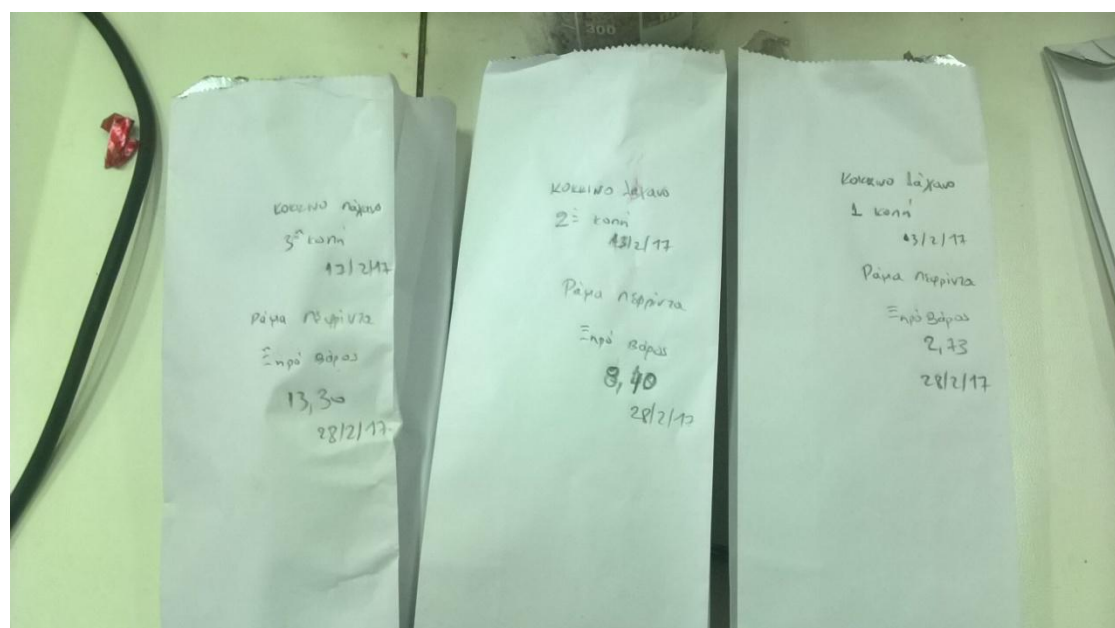 300
κοκκινο λάχανο
3η κοπή
13/2/17
Ράμα Πεφρίντα
Ξηρό Βάρος
13,30
28/2/17
κοκκινο λάχανο
2η κοπή
13/2/17
Ράμα Πεφρίντα
Ξηρό Βάρος
8,40
28/2/17
κοκκινο λάχανο
1 κοπή
13/2/17
Ράμα Πεφρίντα
Ξηρό Βάρος
2,73
28/2/17